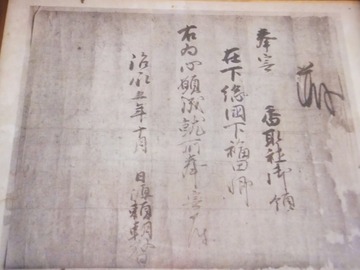 奉寄　香取社御領
在下総国下福田郷
右為心願成就所奉寄
治承五年十月　日源頼朝